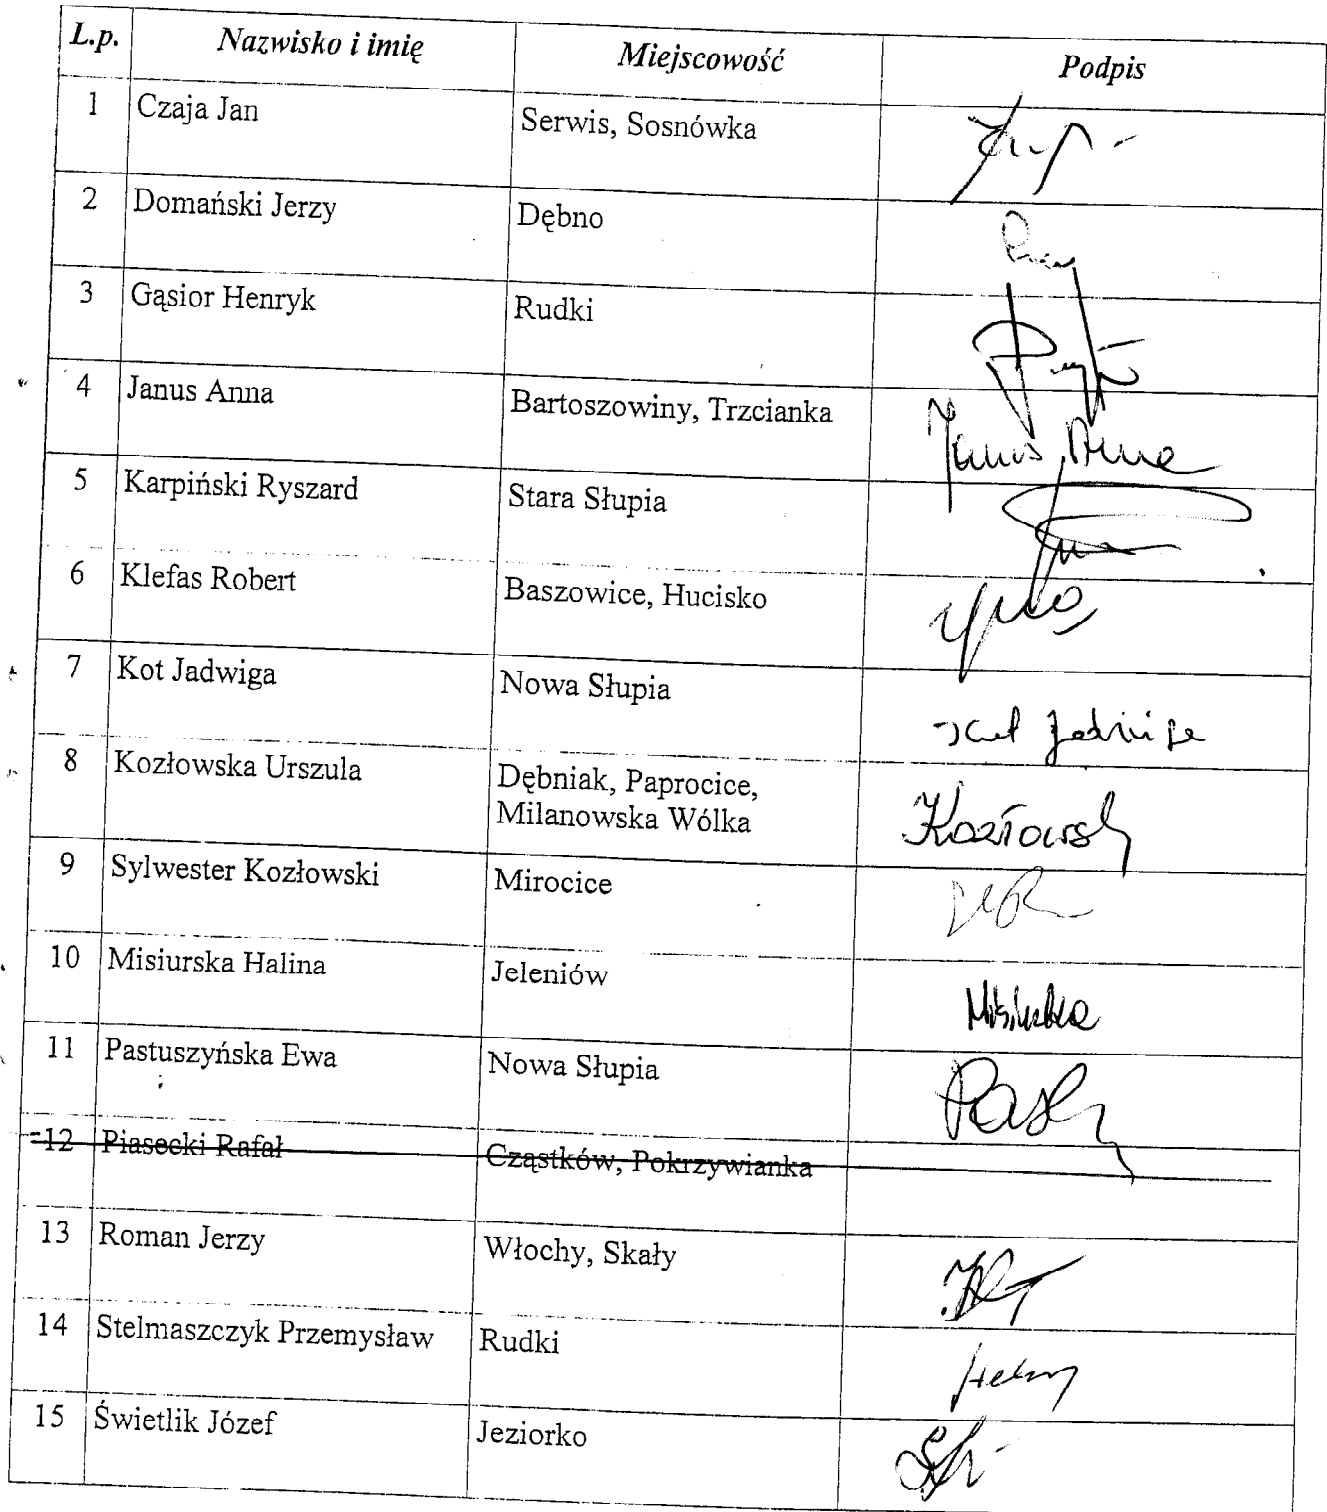 L.p. Nazwisko i imię Miejscowość Podpis
1 Czaja Jan Serwis, Sosnówka
2 Domański Jerzy Dębno
3 Gąsior Henryk Rudki
4 Janus Anna Bartoszowiny, Trzcianka Janus Anna
5 Karpiński Ryszard Stara Słupia
6 Klefas Robert Baszowice, Hucisko
7 Kot Jadwiga Nowa Słupia Kot Jadwiga
8 Kozłowska Urszula Dębniak, Paprocice,
Milanowska Wólka Kozłowska
9 Sylwester Kozłowski Mirocice
10 Misiurska Halina Jeleniów Misiurska
11 Pastuszyńska Ewa Nowa Słupia
12 Piasecki Rafał Cząstków, Pokrzywianka
13 Roman Jerzy Włochy, Skały
14 Stelmaszczyk Przemysław Rudki
15 Świetlik Józef Jeziorko